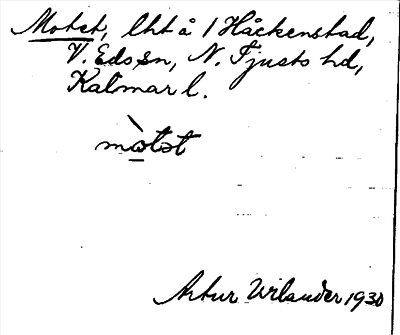 Motet, lht å 1 Håckenstad,
V. Eds sn, N. Tjusts hd,
Kalmar l.
mòtət
Artur Wilander 1930